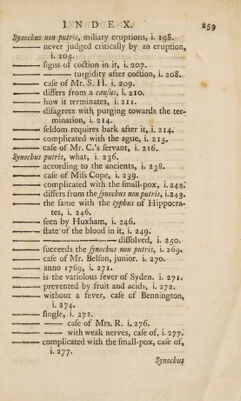 INDEX.
259
Synochus non putris, miliary eruptions, i. 198.
——— never judged critically by an eruption,
i. 205.
——— signs of coction in it, i. 207.
——— ——— turgidity after coction, i. 208.
——— case of Mr. S. H. i. 209.
——— differs from a causus, i. 210.
——— how it terminates, i. 211.
——— disagrees with purging towards the ter-
mination, i. 214.
——— seldom requires bark after it, i. 214.
——— complicated with the ague, i. 215.
——— case of Mr. C.'s servant, i. 216.
Synochus putris, what, i. 236.
——— according to the ancients, i. 238.
——— case of Miss Cope, i. 239.
——— complicated with the small-pox, i. 242.
——— differs from the synochus non putris, i. 243.
——— the same with the typhus of Hippocra-
tes, i. 246.
——— seen by Huxham, i. 246.
——— state of the blood in it, i. 249.
——— ——— dissolved, i. 250.
——— succeeds the synochus non putris, i. 269.
——— case of Mr. Belson, junior. i. 270.
——— anno 1769, i. 271.
——— is the variolous fever of Syden. i. 271.
——— prevented by fruit and acids, i. 272.
——— without a fever, case of Bennington,
i. 274.
——— single, i. 272.
——— ——— case of Mrs. R. i. 276.
——— ——— with weak nerves, case of, i. 277.
——— complicated with the small-pox, case of,
i. 277.
Synochus